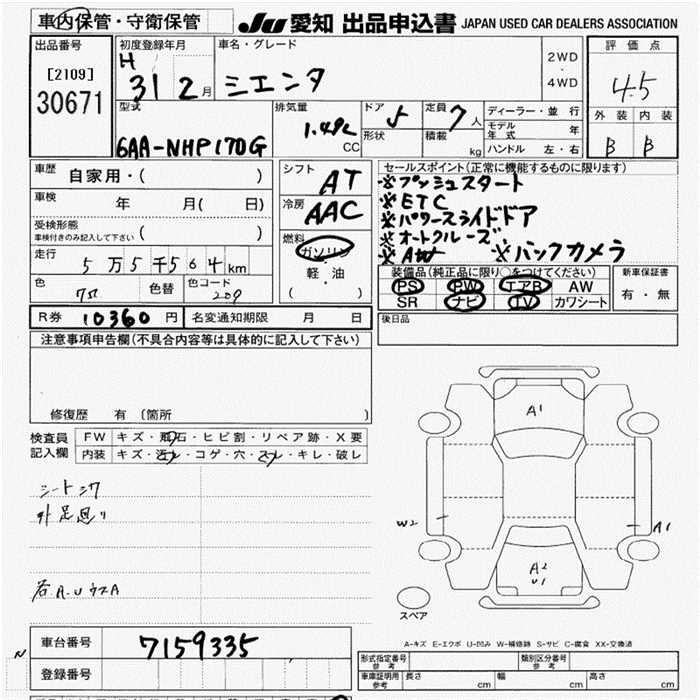 車内保管・守衛保管
JU 愛知 出品申込書 JAPAN USED CAR DEALERS ASSOCIATION
出品番号
[2109]
30671
初度登録年月
H 31 2月
車名・グレード
シエンタ
2WD
・
4WD
評価点
4.5
外装 内装
B B
型式
6AA-NHP170G
排気量
1.49L
CC
ドア 5
形状
定員 7人
積載 kg
ディーラー・並行
モデル年式 年
ハンドル 左・右
車歴 自家用・( )
車検 年 月( 日)
受検形態
車検付きのみ記入して下さい ( )
走行 5万5千564km
色 色替 色コード
209
シフト AT
冷房 AAC
燃料
ガソリン
軽・油
( )
セールスポイント(正常に機能するものに限ります)
※プッシュスタート
※ETC
※パワースライドドア
※オートクルーズ
※AW ※バックカメラ
装備品(純正品に限り○をつけてください)
PS PW エアB AW
SR ナビ TV カワシート
新車保証書
有・無
R券 10360円 名変通知期限 月 日
後日品
注意事項申告欄(不具合内容等は具体的に記入して下さい)
修復歴 有 (箇所 )
検査員
記入欄
FW キズ・飛石・ヒビ割・リペア跡・X要
内装 キズ・汚レ・コゲ・穴・スレ・キレ・破レ
シートシワ
外足廻り
A1
W2
A1
A2
U1
スペア
A-キズ E-エクボ U-凹み W-補修跡 S-サビ C-腐食 XX-交換済
車台番号 7159335
登録番号
N
形式指定番号
参考
類別区分番号
参考
車庫証明用
参考
長さ cm 幅 cm 高さ cm